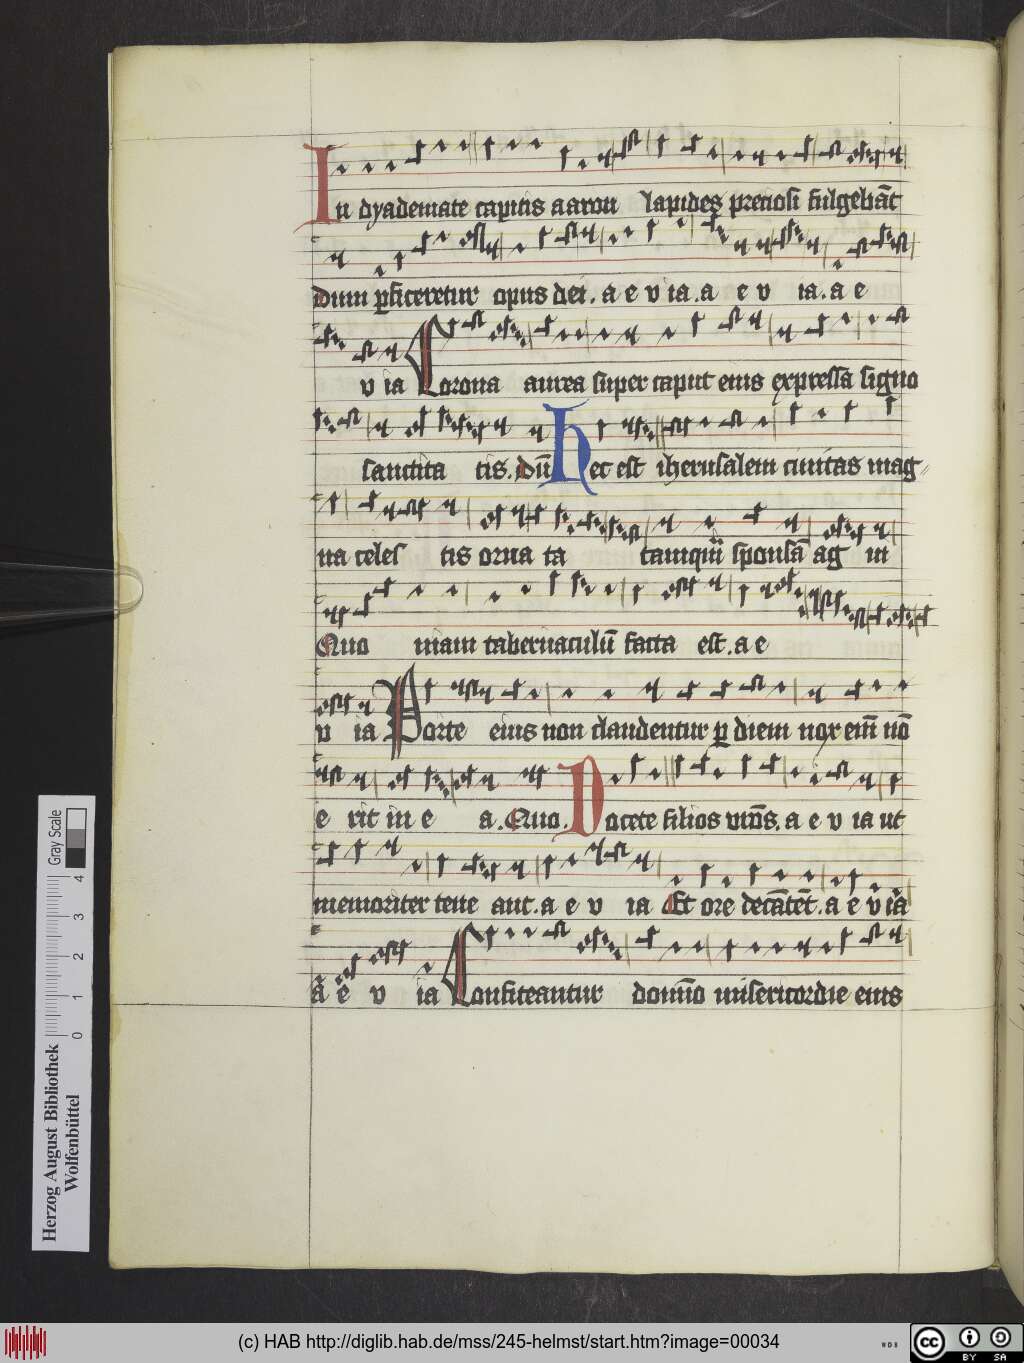 In dyademate capitis aaron lapides preciosi fulgebāt
Dum ꝑficeretur opus dei. a e v ia. a e v ia. a e
v ia Corona aurea super caput eius expressa signo
sanctita tis. Dū Hec est iherusalem ciuitas mag
na celes tis orna ta tamquā sponsa ag ni
Quo niam tabernaculū facta est. a e
v ia Porte eius non claudentur ꝑ diem nox enī nō
e rit in e a. Quo. Docete filios vr̄os. a e v ia ut
memoriter tene ant. a e v ia Et ore decātēt. a e v ia
a e v ia Confiteantur domino misericordie eius
Gray Scale
0 1 2 3 4
Herzog August Bibliothek
Wolfenbüttel
(c) HAB http://diglib.hab.de/mss/245-helmst/start.htm?image=00034
WDB
cc BY SA